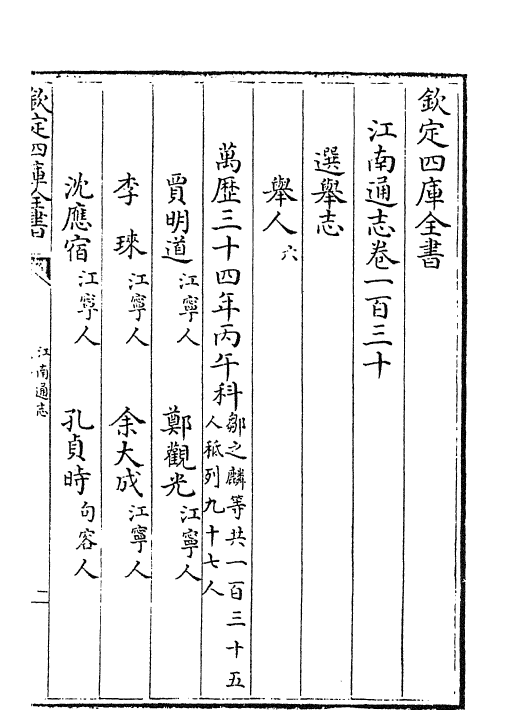 欽定四庫全書
江南通志卷一百三十
選舉志
舉人六
萬歷三十四年丙午科鄒之麟等共一百三十五人秪列九十七人
賈明道江寧人 鄭觀光江寧人
李琜江寧人 余大成江寧人
沈應宿江寧人 孔貞時句容人
欽定四庫全書
江南通志
二